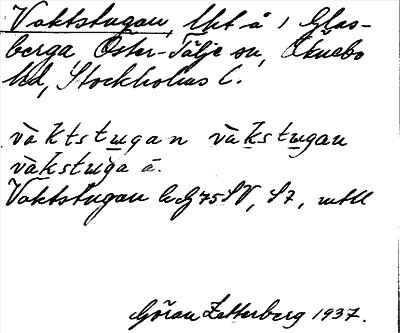 Vaktstugan, lht å 1 Glas-
berga, Öster-Tälje sn, Öknebo
hd, Stockholms l.
vàktstugan vàkstugan
vàkstuga ä.
Vaktstugan GV, S7,
Göran Zetterberg 1937.